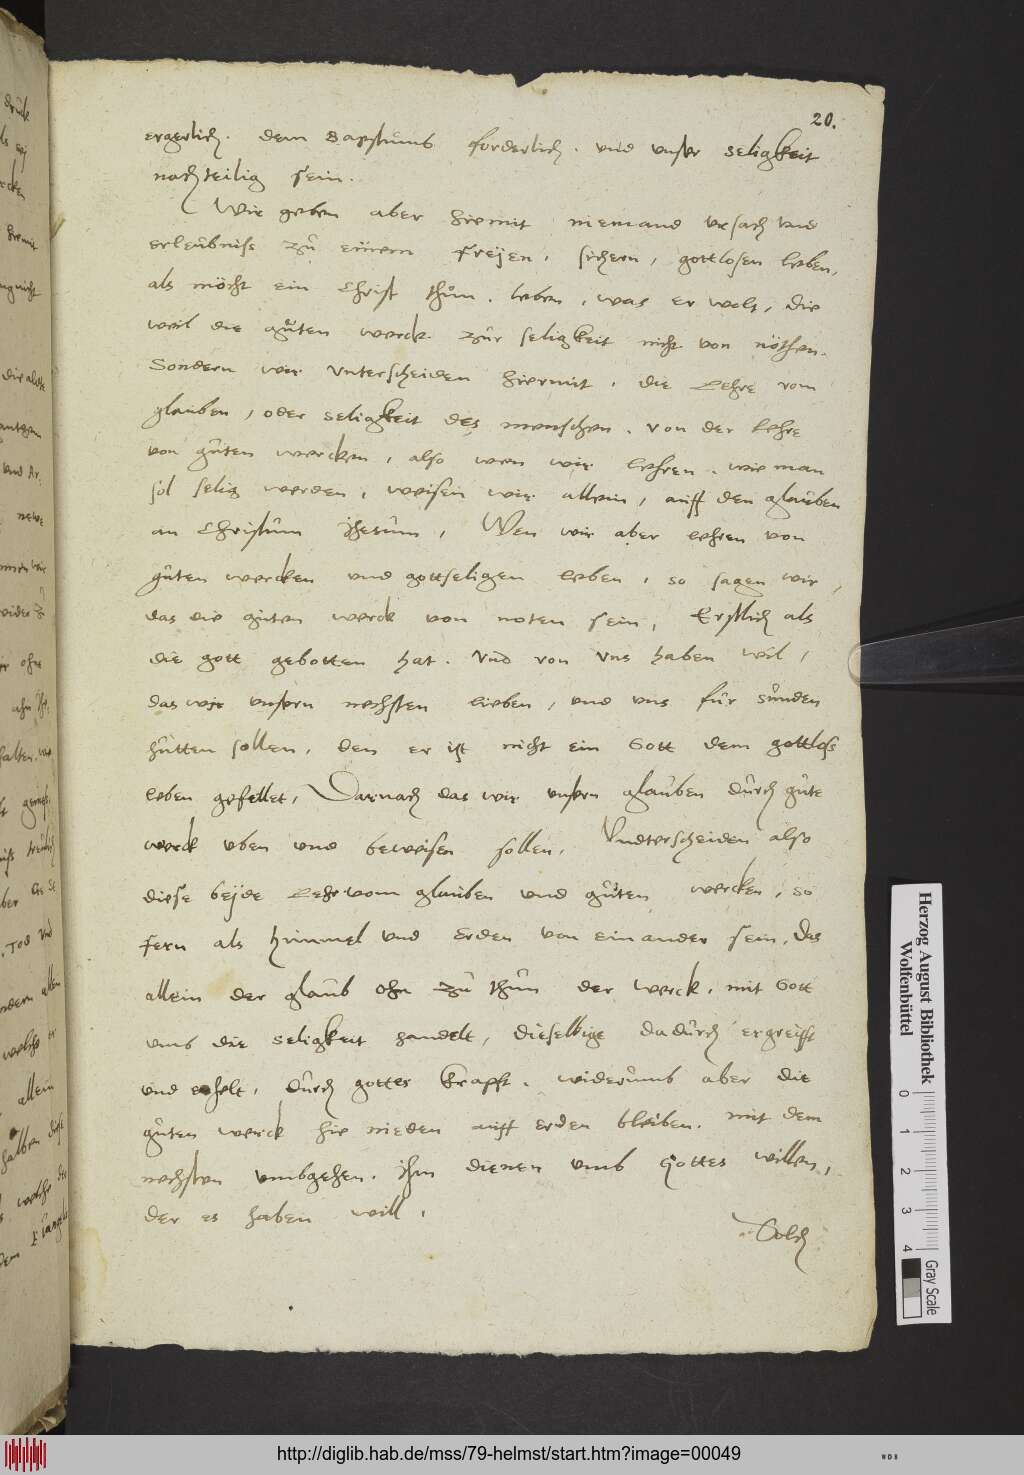 20.
ergerlich. dem Bapstumb forderlich. und unser seligkeit
nachteilig sein.
Wir geben aber hiemit niemand ursach und
erleubniss zu einem freijen, sichern, gottlosen leben,
als möcht ein Christ thun. leben, was er welt, die
weil die guten werck. zur seligkeit nicht von nöthen.
Sondern wir unterscheiden hiermit, die Lehre vom
glauben, oder seligkeit des menschen. von der lehre
von guten wercken, also wen wir lehren. wie man
sol selig werden, weisen wir allein, auff den glauben
an Christum Jhesum, Wen wir aber lehren von
guten wercken und gottseligen leben, so sagen wir,
das die guten werck von noten sein, Erstlich als
die gott gebotten hat. und von uns haben wil,
das wir unsern nechsten lieben, und uns fur sunden
hutten sollen, den er ist nicht ein Gott dem gottloss
leben gefellet, Darnach das wir unsern glauben durch gute
werck uben und beweisen sollen. Undterscheiden also
diese beijde Lehr vom glauben und guten wercken, so
fern als himmel und Erden von einander sein, das
allein der glaub ohn zu thun der werck, mit Gott
umb die seligkeit handelt, dieselbige dadurch ergreifft
und erhelt, durch gottes krafft. widerumb aber die
guten werck hie nieden auff erden bleiben. mit dem
nechsten umbgehen. ihm dienen umb Gottes willen,
der es haben will.
Solch
Herzog August Bibliothek
Wolfenbüttel
0 1 2 3 4
Gray Scale
http://diglib.hab.de/mss/79-helmst/start.htm?image=00049